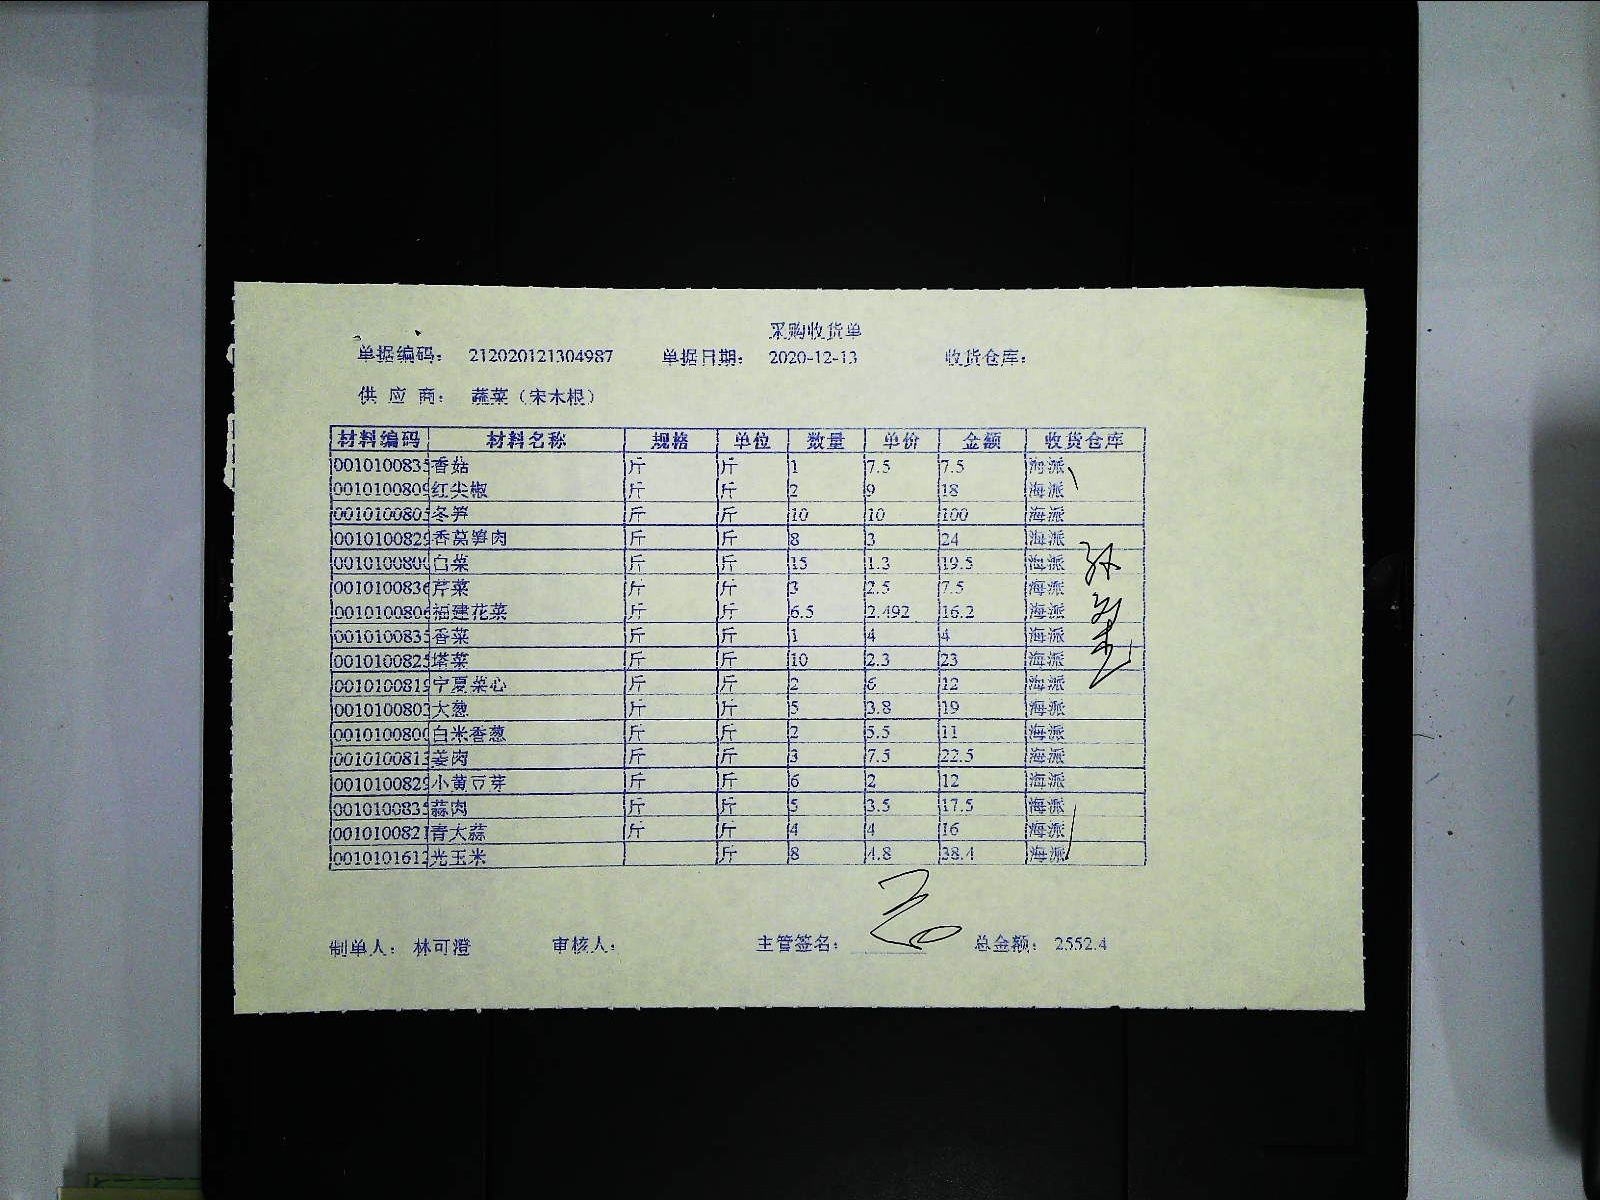 采购收货单
单据编码： 212020121304987 单据日期： 2020-12-13 收货仓库：
供 应 商： 蔬菜（宋木根）
材料编码 材料名称 规格 单位 数量 单价 金额 收货仓库
0010100835 香菇 斤 斤 1 7.5 7.5 海派
0010100809 红尖椒 斤 斤 2 9 18 海派
0010100805 冬笋 斤 斤 10 10 100 海派
0010100829 香莴笋肉 斤 斤 8 3 24 海派
0010100800 白菜 斤 斤 15 1.3 19.5 海派
0010100836 芹菜 斤 斤 3 2.5 7.5 海派
0010100806 福建花菜 斤 斤 6.5 2.492 16.2 海派
0010100835 香菜 斤 斤 1 4 4 海派
0010100825 塔菜 斤 斤 10 2.3 23 海派
0010100819 宁夏菜心 斤 斤 2 6 12 海派
0010100803 大葱 斤 斤 5 3.8 19 海派
0010100800 白米香葱 斤 斤 2 5.5 11 海派
0010100813 姜肉 斤 斤 3 7.5 22.5 海派
0010100829 小黄豆芽 斤 斤 6 2 12 海派
0010100835 蒜肉 斤 斤 5 3.5 17.5 海派
0010100821 青大蒜 斤 斤 4 4 16 海派
0010101612 光玉米 斤 8 4.8 38.4 海派
制单人： 林可澄 审核人： 主管签名： 总金额： 2552.4